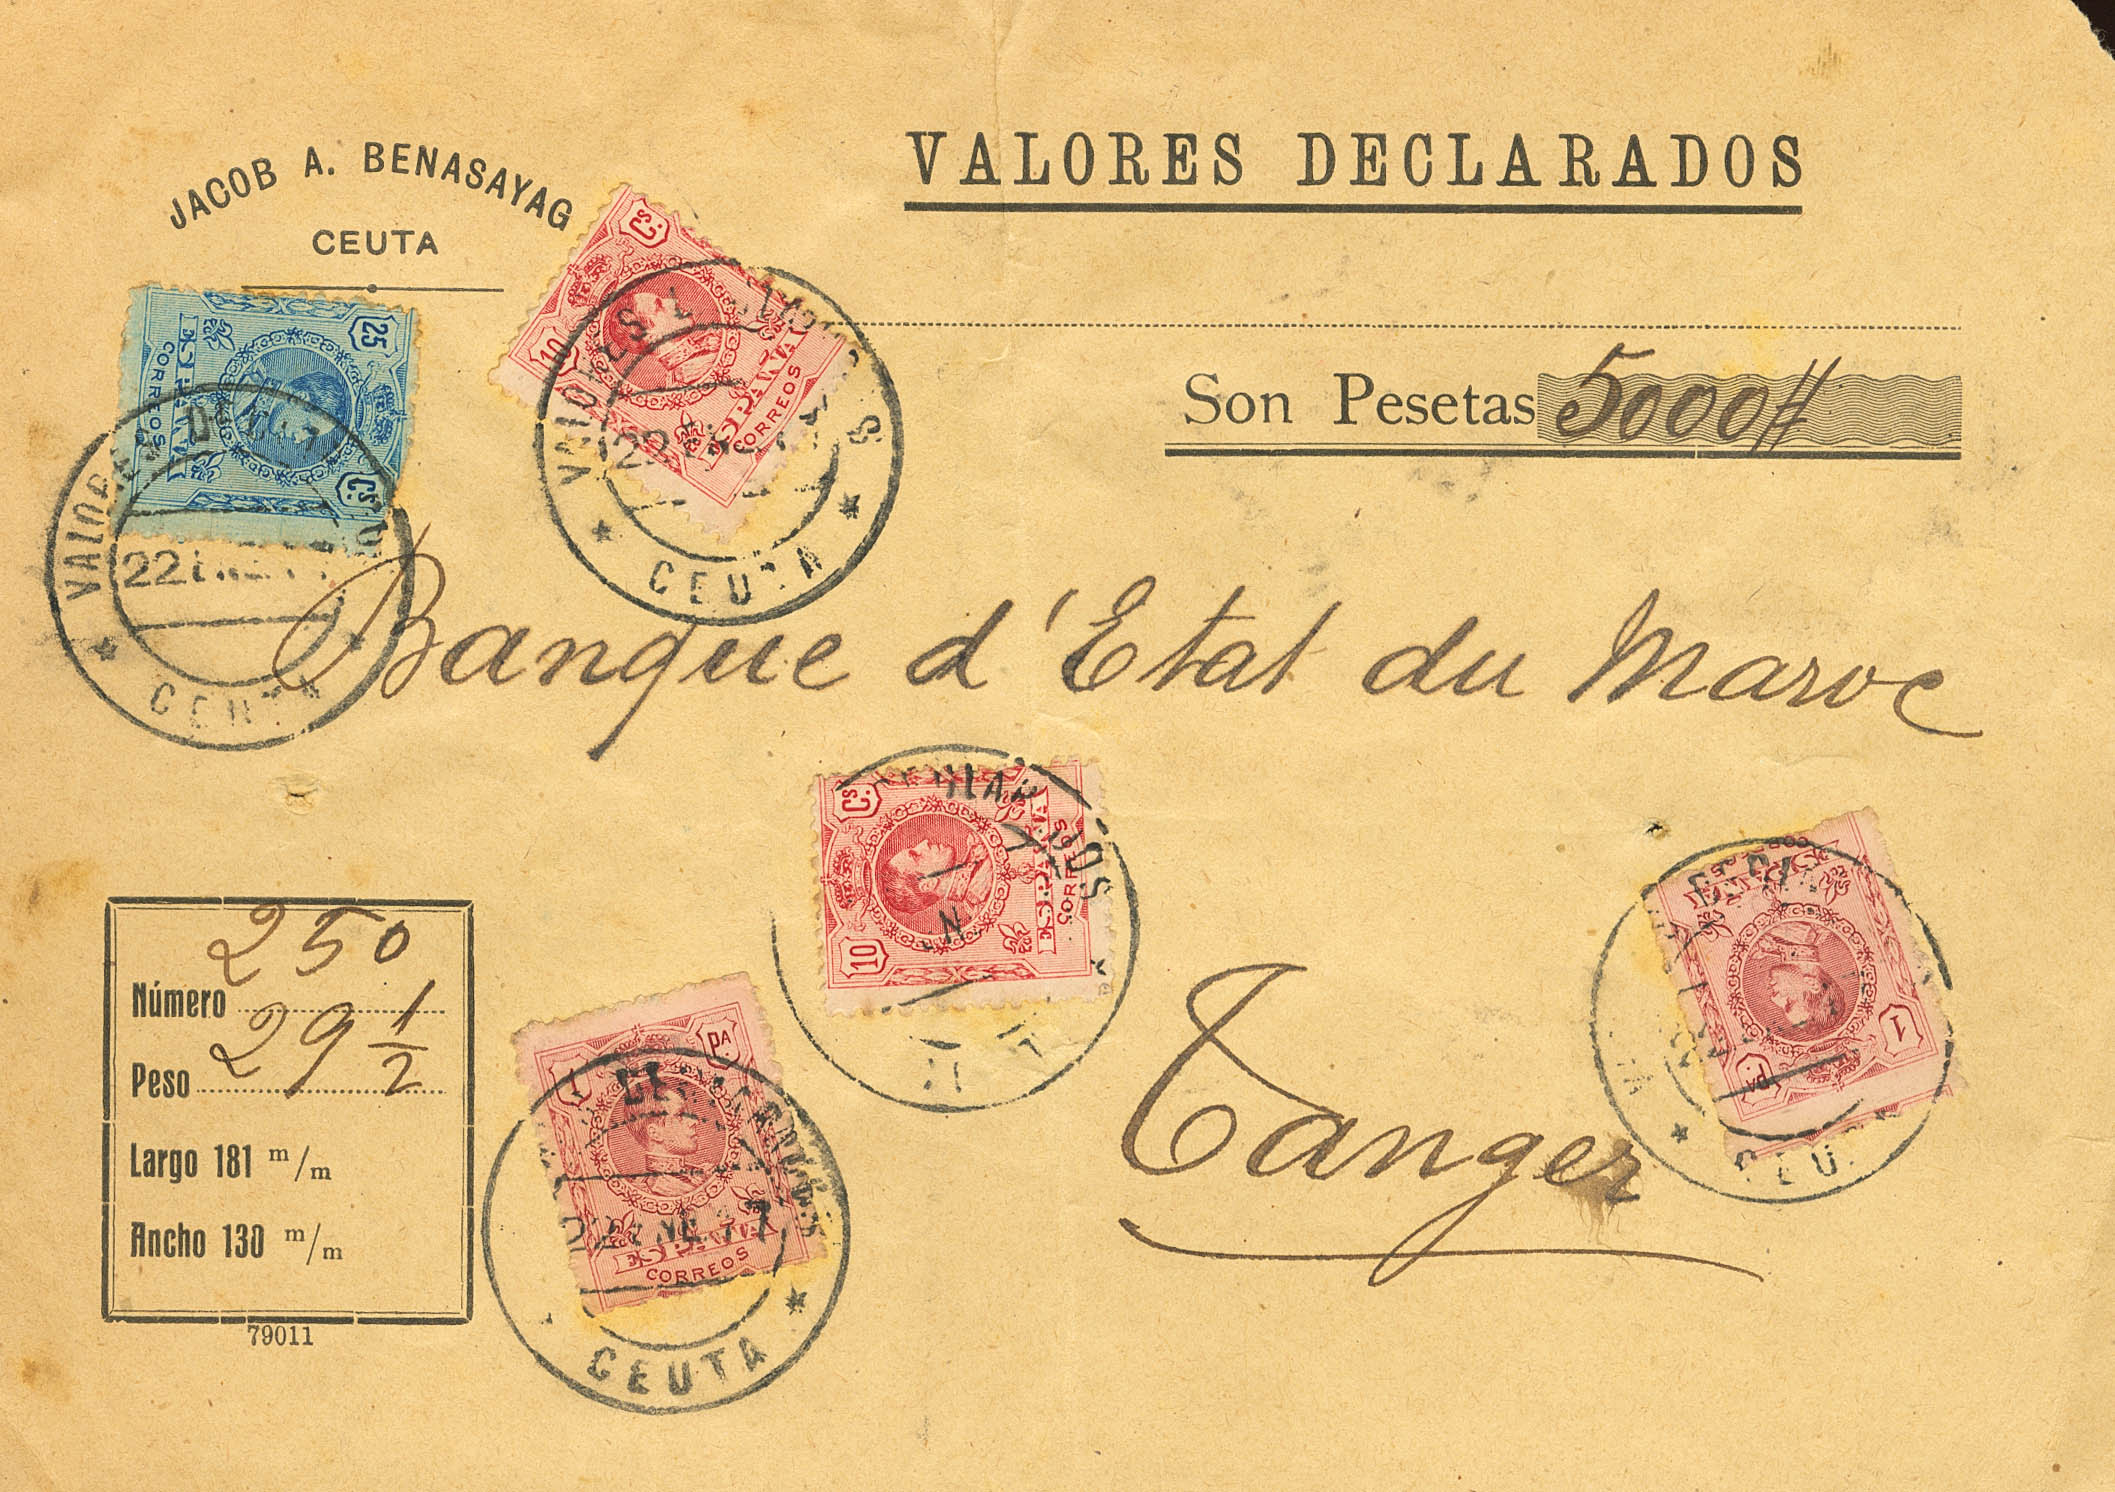 JACOB A. BENASAYAG
CEUTA
VALORES DECLARADOS
Son Pesetas 5000#
25 Cs
ESPAÑA
CORREOS
10 Cs
ESPAÑA
CORREOS
CEUTA
22
CEUTA
22
Banque d'Etat du Maroc
10 Cs
ESPAÑA
CORREOS
1 PA
ESPAÑA
CORREOS
CEUTA
1 PA
CEU
Tanger
Número 250
Peso 29 1/2
Largo 181 m/m
Ancho 130 m/m
79011